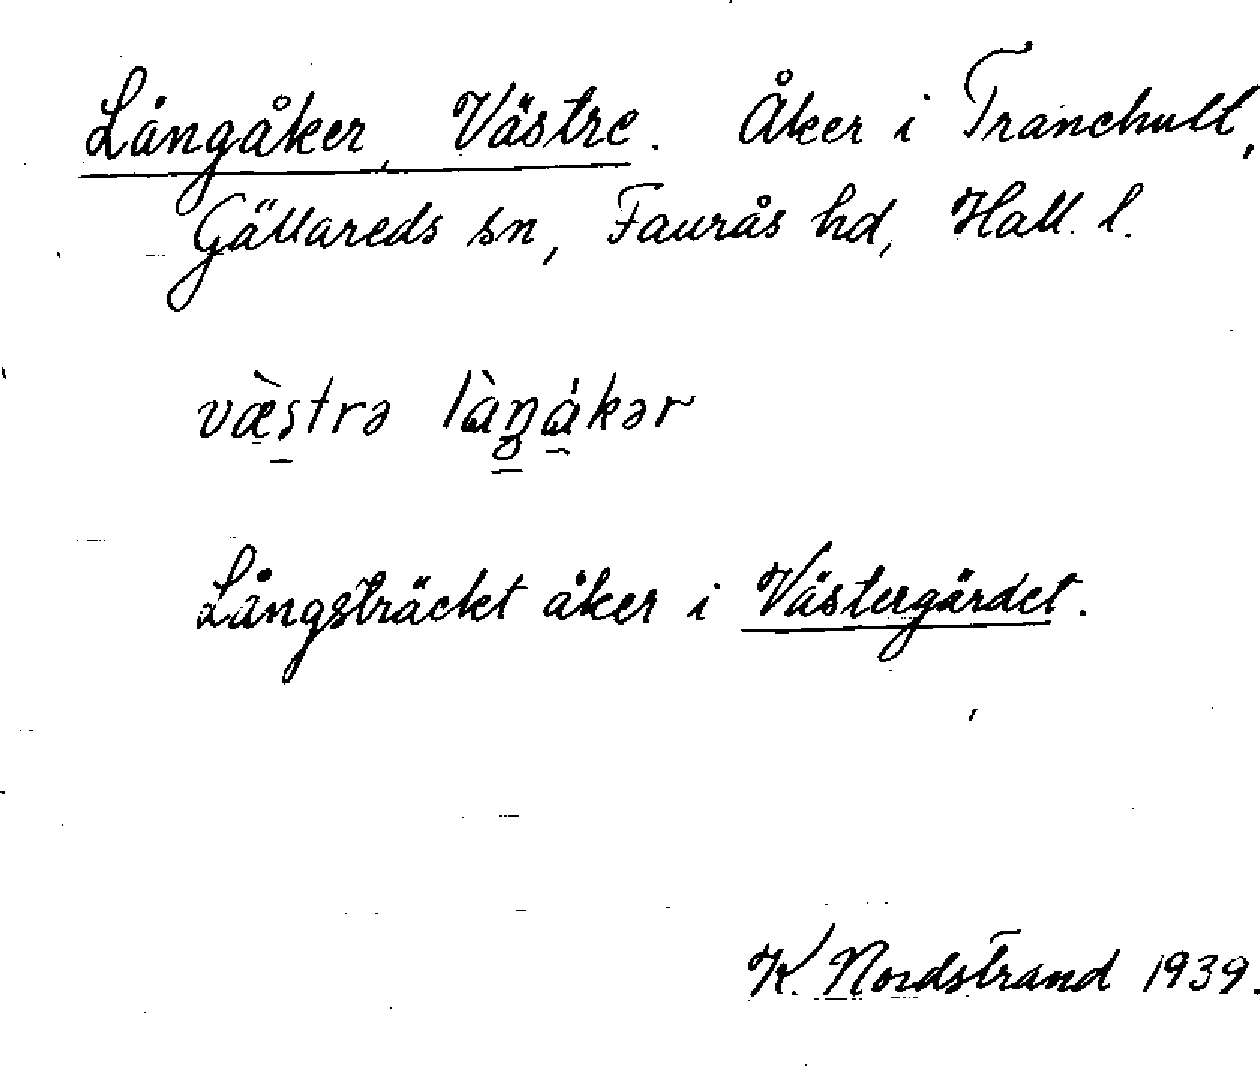 Långåker, Västre. Åker i Tranehult,
Gällareds sn, Faurås hd, Hall. l.
væ̀strə làŋákər
Långsträckt åker i Västergärdet.
K. Nordstrand 1939.